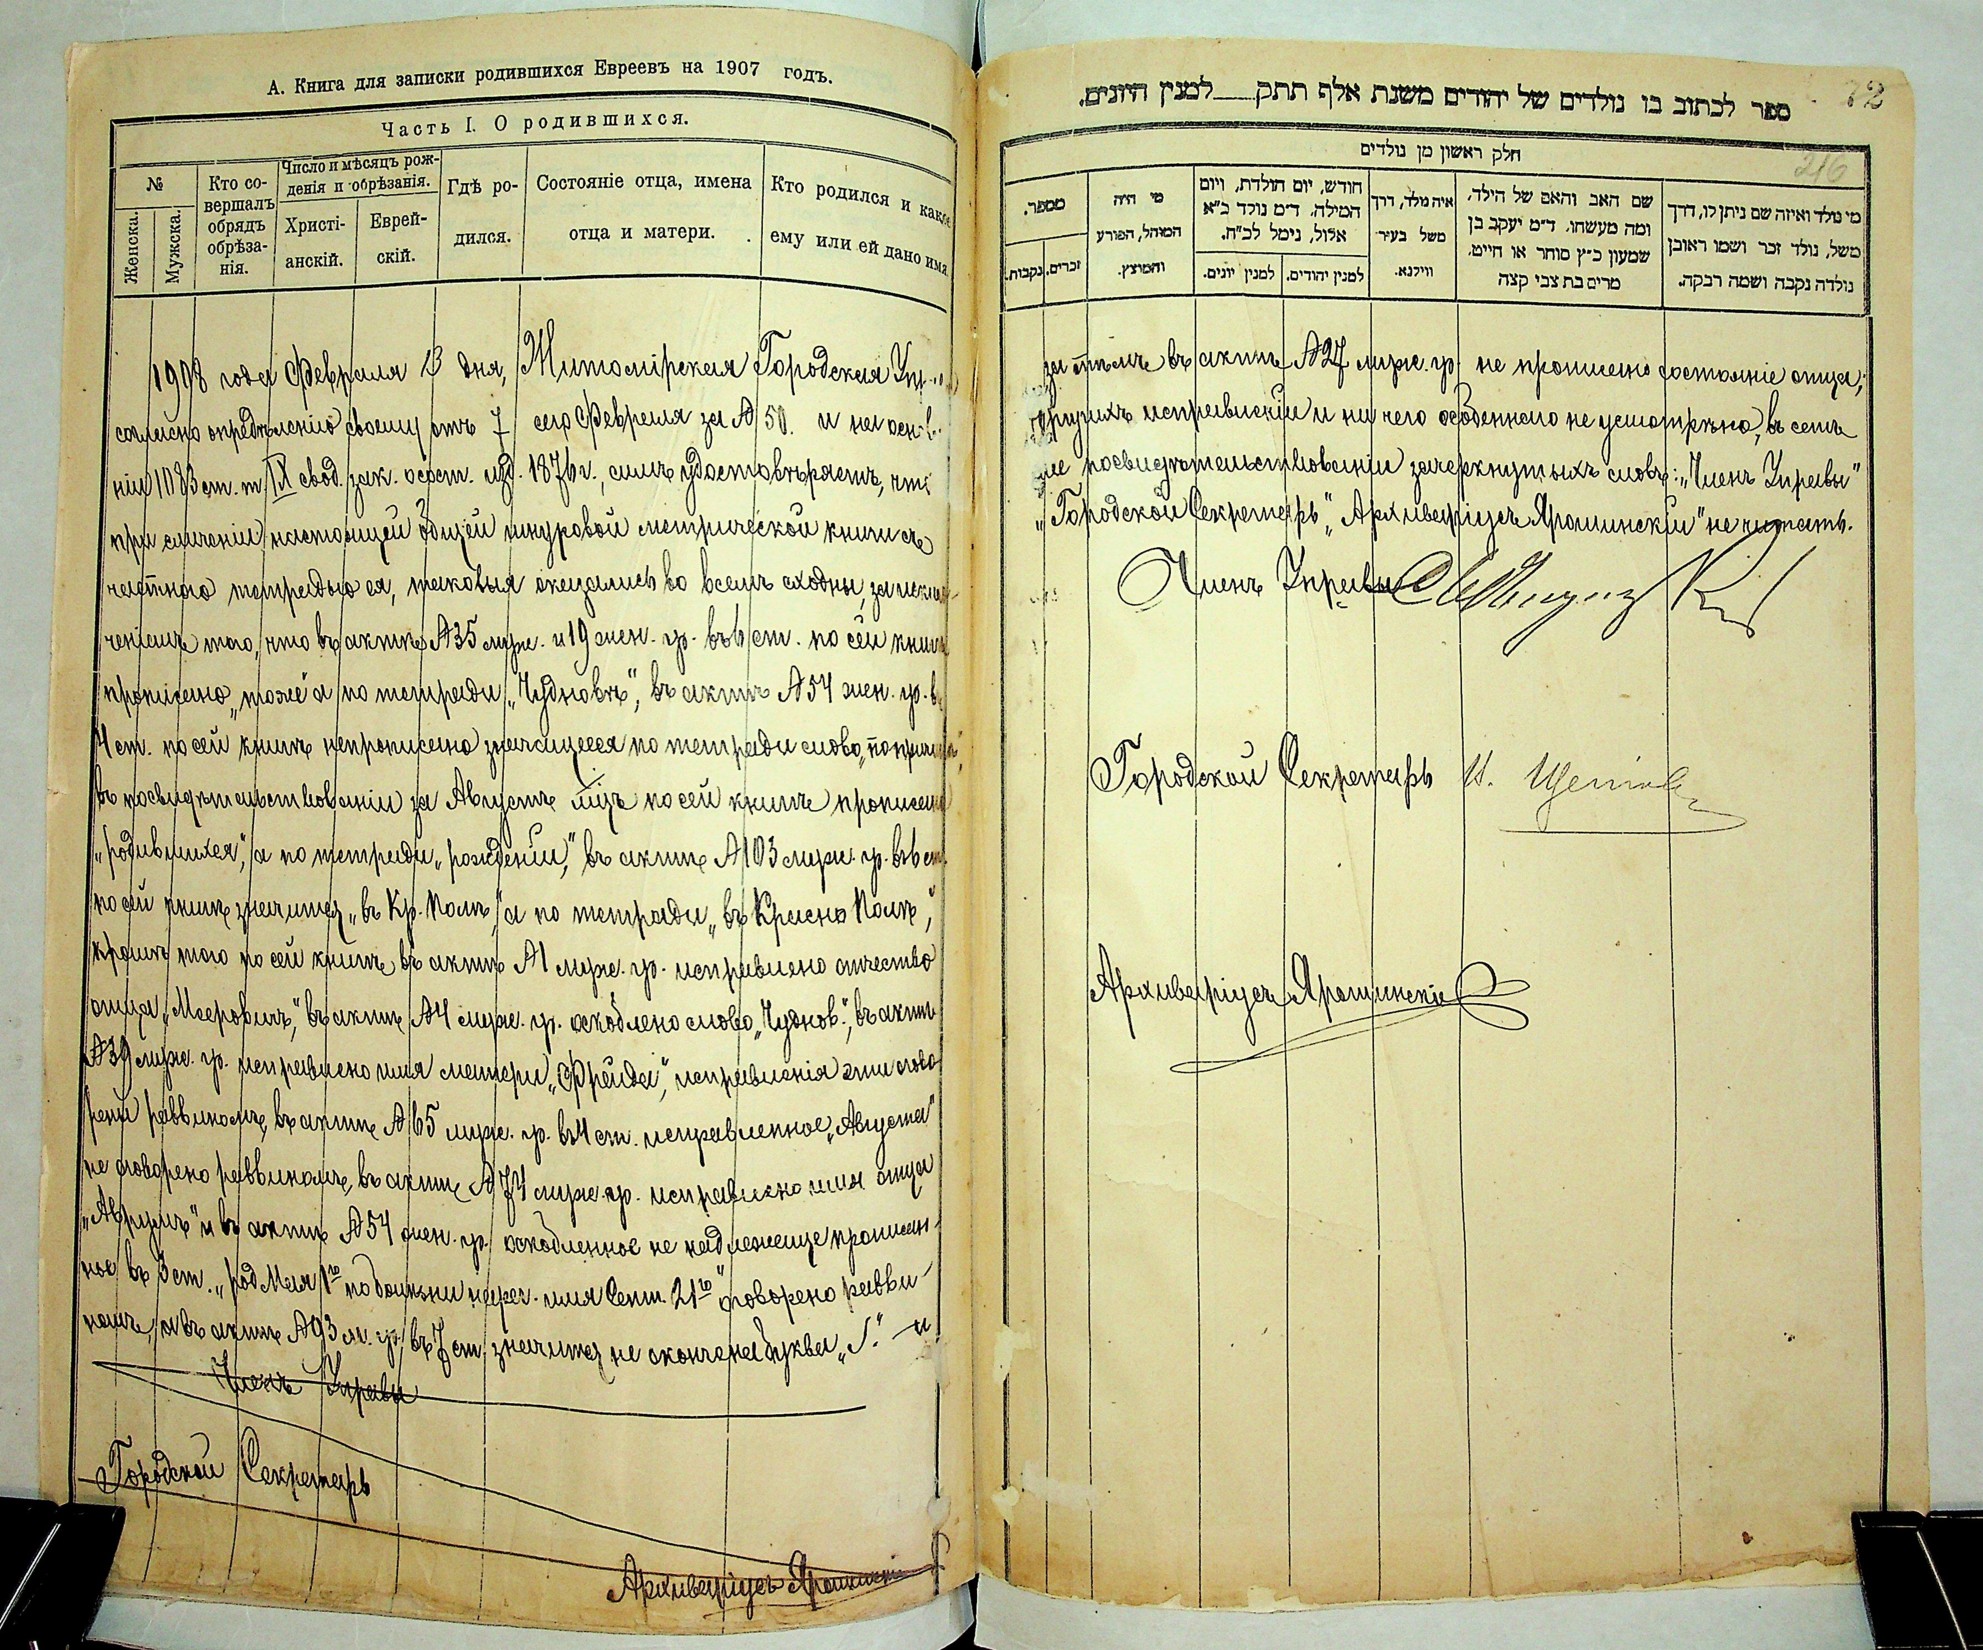 А. Книга для записки родившихся Евреевъ на 1907 годъ.
Часть I. О родившихся.
№
Женска.
Мужска.
Кто со-
вершалъ
обрядъ
обрѣза-
нія.
Число и мѣсяцъ рож-
денія и обрѣзанія.
Христі-
анскій.
Еврей-
скій.
Гдѣ ро-
дился.
Состояніе отца, имена
отца и матери.
Кто родился и какое
ему или ей дано имя.
1908 года Февраля 13 дня, Житомірская Городская
согласно опредѣленію своему отъ 7 сего Февраля за № 50. и на осно-
ніи 1083 ст. т. IX свод. зак. о сост. изд. 1876 г., симъ удостовѣряетъ, что
при сличеніи настоящей общей шнуровой метрической книги съ
частною тетрадью ея, таковыя оказались во всемъ сходны, за исклю-
ченіемъ того, что въ актѣ № 35 муж. и 19 жен. гр. въ 6 ст. по сей книгѣ
прописано „тоже" а по тетради „Чудновѣ", въ актѣ № 54 жен. гр. въ
4 ст. по сей книгѣ непрописано значущееся по тетради слово
въ посвидѣтельствованіи за Августъ мѣс. по сей книгѣ прописано
„родившихся", а по тетради „рожденіи", въ актѣ № 103 муж. гр. въ 6 ст.
по сей книгѣ значится „въ Кр. Полѣ", а по тетради „въ Красно Полѣ",
кромѣ того по сей книгѣ въ актѣ № 1 муж. гр. исправлено отчество
отца „Мееровичъ", въ актѣ № 4 муж. гр. оскоблено слово „Чуднов.", въ актѣ
№ 39 муж. гр. исправлено имя матери „Фрейда", исправленія эти огово-
рены раввиномъ, въ актѣ № 65 муж. гр. въ 4 ст. исправленное „Августа"
не оговорено раввиномъ, въ актѣ № 74 муж. гр. исправлено имя отца
„Аврумъ" и въ актѣ № 54 жен. гр. оскобленное не надлежаще прописан-
ное въ 3 ст. „род Мая 1го по болѣзни нареч. имя Сент. 21го" оговорено равви-
номъ, а въ актѣ № 93 м. гр. въ 7 ст. значится не окончена буква и
Членъ Управы
Городской Секретарь
Архиваріусъ Ярошинскій
72
216
ספר לכתוב בו נולדים של יהודים משנת אלף תתק___ למנין היונים.
חלק ראשון מן נולדים
מספר.
נקבות.
זכרים.
מי היה
המוהל, הפורע
והמוצץ.
חודש, יום תולדת, ויום
המילה. ד״מ נולד כ״א
אלול, נימל לכ״ח.
למנין יונים.
למנין יהודים.
איה נולד, דרך
משל בעיר
ווילנא.
שם האב והאם של הילד,
ומה מעשהו. ד״מ יעקב בן
שמעון כ״ץ סוחר או חייט,
מרים בת צבי קצה
מי נולד ואיזה שם ניתן לו, דרך
משל, נולד זכר ושמו ראובן
נולדה נקבה ושמה רבקה.
за тѣмъ въ актѣ № 27 муж. гр. не прописано состояніе отца;
другихъ исправленій и ни чего особеннаго не усмотрѣно, въ семъ
же посвидѣтельствованіи зачеркнутыхъ словъ: „Членъ Управы"
„Городской Секретарь", „Архиваріусъ Ярошинскій" не читать.
Членъ Управы
Городской Секретарь
Архиваріусъ Ярошинскій